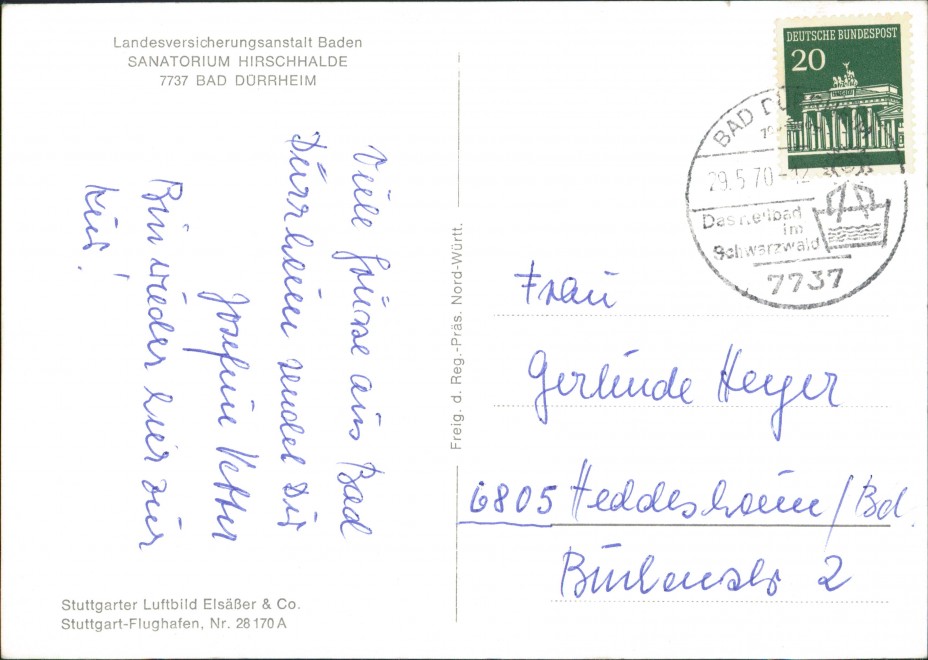 Landesversicherungsanstalt Baden
SANATORIUM HIRSCHHALDE
7737 BAD DÜRRHEIM
Viele Grüsse aus Bad
Dürrheim sendet Dir
Josefine Vetter
Bin wieder hier zur
Kur!
Stuttgarter Luftbild Elsäßer & Co.
Stuttgart-Flughafen, Nr. 28170A
Freig. d. Reg.-Präs. Nord-Württ.
DEUTSCHE BUNDESPOST
20
BAD
29.5.70-12
Das Heilbad
im
Schwarzwald
7737
Frau
Gerlinde Heyer
6805 Heddesheim/Bd.
2